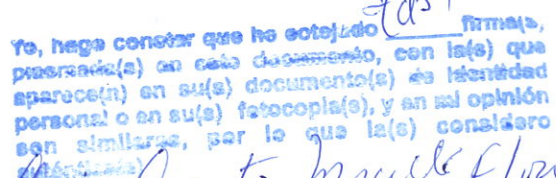 Yo, hago constar que he cotejado firma(s),
plasmada(s) en este documento, con la(s) que
aparece(n) en su(s) documento(s) de identidad
personal o en su(s) fotocopia(s), y en mi opinión
son similares, por lo que la(s) considero
auténtica(s)